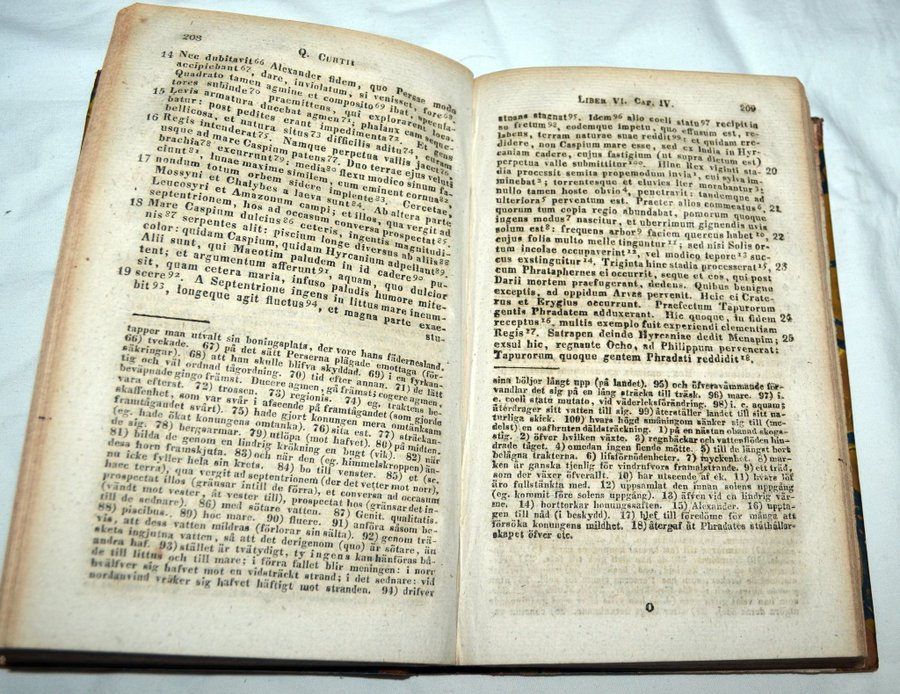 208
Q. CURTII
14 Nec dubitavit66 Alexander fidem, quo Persae modo
accipiebant67, dare, inviolatum, si venisset, fore68.
Quadrato tamen agmine et composito69 ibat, specula-
tores subinde70 praemittens, qui explorarent loca.
15 Levis armatura ducebat agmen71; phalanx eam seque-
batur: post pedites erant impedimenta72. Et gens
bellicosa, et natura situs73 difficilis aditu74, curam
16 Regis intenderat75. Namque perpetua vallis jacet76,
usque ad mare Caspium patens77. Duo terrae ejus veluti
brachia78 excurrunt79: media80 flexu modico sinum fa-
ciunt81, lunae maxime similem, cum eminent cornua82,
17 nondum totum orbem sidere implente83. Cercetae,
Mossyni et Chalybes a laeva sunt84. Ab altera parte
Leucosyri et Amazonum campi; et illos, qua vergit ad
septentrionem, hos ad occasum conversa prospectat85.
18 Mare Caspium dulcius86 ceteris, ingentis magnitudi-
nis87 serpentes alit: piscium longe diversus ab aliis88
color: quidam Caspium, quidam Hyrcanium adpellant89.
Alii sunt, qui Maeotim paludem in id cadere90 pu-
tent; et argumentum afferunt91, aquam, quo dulcior
sit, quam cetera maria, infuso paludis humore mite-
19 scere92. A Septentrione ingens in littus mare incum-
bit93, longeque agit fluctus94, et magna parte exae-
stu-
tapper man utvalt sin boningsplats, der vore hans fädernesland.
66) tvekade. 67) på det sätt Perserna plägade emottaga (för-
säkringar). 68) att han skulle blifva skyddad. 69) i en fyrkan-
tig och väl ordnad tågordning. 70) tid efter annan. 71) de lätt
beväpnade gingo främst. Ducere agmen, gå främst; cogere agmen,
vara efterst. 72) trossen. 73) regionis. 74) eg. traktens be-
skaffenhet, som var svår i afseende på framtågandet (som gjorde
framtågandet svårt). 75) hade gjort konungen mera omtänksam
(eg. hade ökat konungens omtanka). 76) sita est. 77) sträckan-
de sig. 78) bergsarmar. 79) utlöpa (mot hafvet). 80) på midten.
81) bilda de genom en lindrig krökning en bugt (vik). 82) när
dess horn framskjuta. 83) och när den (eg. himmelskroppen) än-
nu icke fyller hela sin krets. 84) bo till venster. 85) et (se.
haec terra), qua vergit ad septentrionem (der det vetter mot norr),
prospectat illos (gränsar intill de förra), et conversa ad occasum
(vände mot vester, åt vester till), prospectat hos (gränsar det in-
till de sednare). 86) med sötare vatten. 87) Genit. qualitatis.
88) piscibus. 89) hoc mare. 90) fluere. 91) anföra såsom be-
vis, att dess vatten mildras (förlorar sin sälta). 92) genom trä-
skets ingjutna vatten, så att det derigenom (quo) är sötare, än
andra haf. 93) stället är tvätydigt, ty ingens kan hänföras bå-
de till littus och till mare; i förra fallet blir meningen: i norr
hvälfver sig hafvet mot en vidsträckt strand; i det sednare: vid
nordanvind vräker sig hafvet häftigt mot stranden. 94) drifver
LIBER VI. CAP. IV. 209
stuans stagnat95. Idem96 alio coeli statu97 recipit in
se fretum98, eodemque impetu, quo effusum est, re-
labens, terram naturae suae reddit99: et quidam cre-
didere, non Caspium mare esse, sed ex India in Hyr-
caniam cadere, cujus fastigium (ut supra dictum est)
perpetua valle submittitur100. Illinc Rex viginti sta- 20
dia processit semita propemodum invia1, cui sylva im-
minebat2; torrentesque et eluvies iter morabantur3;
nullo tamen hoste obvio4, penetravit; tandemque ad
ulteriora5 perventum est. Praeter alios commeatus6, 21
quorum tum copia regio abundabat, pomorum quoque
ingens modus7 nascitur, et uberrimum gignendis uvis
solum est8: frequens arbor9 faciem quercus habet10, 22
cujus folia multo melle tinguntur11; sed nisi Solis or-
tum incolae occupaverint12, vel modico tepore13 suc-
cus exstinguitur14. Triginta hinc stadia processerat15, 23
cum Phrataphernes ei occurrit, seque et eos, qui post
Darii mortem praefugerant, dedens. Quibus benigne
exceptis, ad oppidum Arvas pervenit. Heic ei Crate-
rus et Erygius occurrunt. Praefectum Tapurorum
gentis Phradatem adduxerant. Hic quoque, in fidem 24
receptus16, multis exemplo fuit experiendi clementiam
Regis17. Satrapen deinde Hyrcaniae dedit Menapim; 25
exsul hic, regnante Ocho, ad Philippum pervenerat:
Tapurorum quoque gentem Phradati reddidit18.
sina böljor långt upp (på landet). 95) och öfversvämmande för-
vandlar det sig på en lång sträcka till träsk. 96) mare. 97) i.
e. coeli statu mutato, vid väderleksförändring. 98) i. e. aquam:
återdrager sitt vatten till sig. 99) återställer landet till sitt na-
turliga skick. 100) hvars högd småningom sänker sig till (me-
delst) en oafbruten däldsträckning. 1) på en nästan obanad skogs-
stig. 2) öfver hvilken växte. 3) regnbäckar och vattenflöden hin-
drade tåget. 4) emedan ingen fiende mötte. 5) till de längst bort
belägna trakterna. 6) lifsförnödenheter. 7) myckenhet. 8) mar-
ken är ganska tjenlig för vindrufvors framalstrande. 9) ett träd,
som der växer öfverallt. 10) har utseende af ek. 11) hvars löf
äro fullstänkta med. 12) uppsamlat den innan solens uppgång
(eg. kommit före solens uppgång). 13) äfven vid en lindrig vär-
me. 14) borttorkar honungssaften. 15) Alexander. 16) uppta-
gen till nåd (i beskydd). 17) blef föredöme för många att
försöka konungens mildhet. 18) återgaf åt Phradates ståthållar-
skapet öfver etc.
O